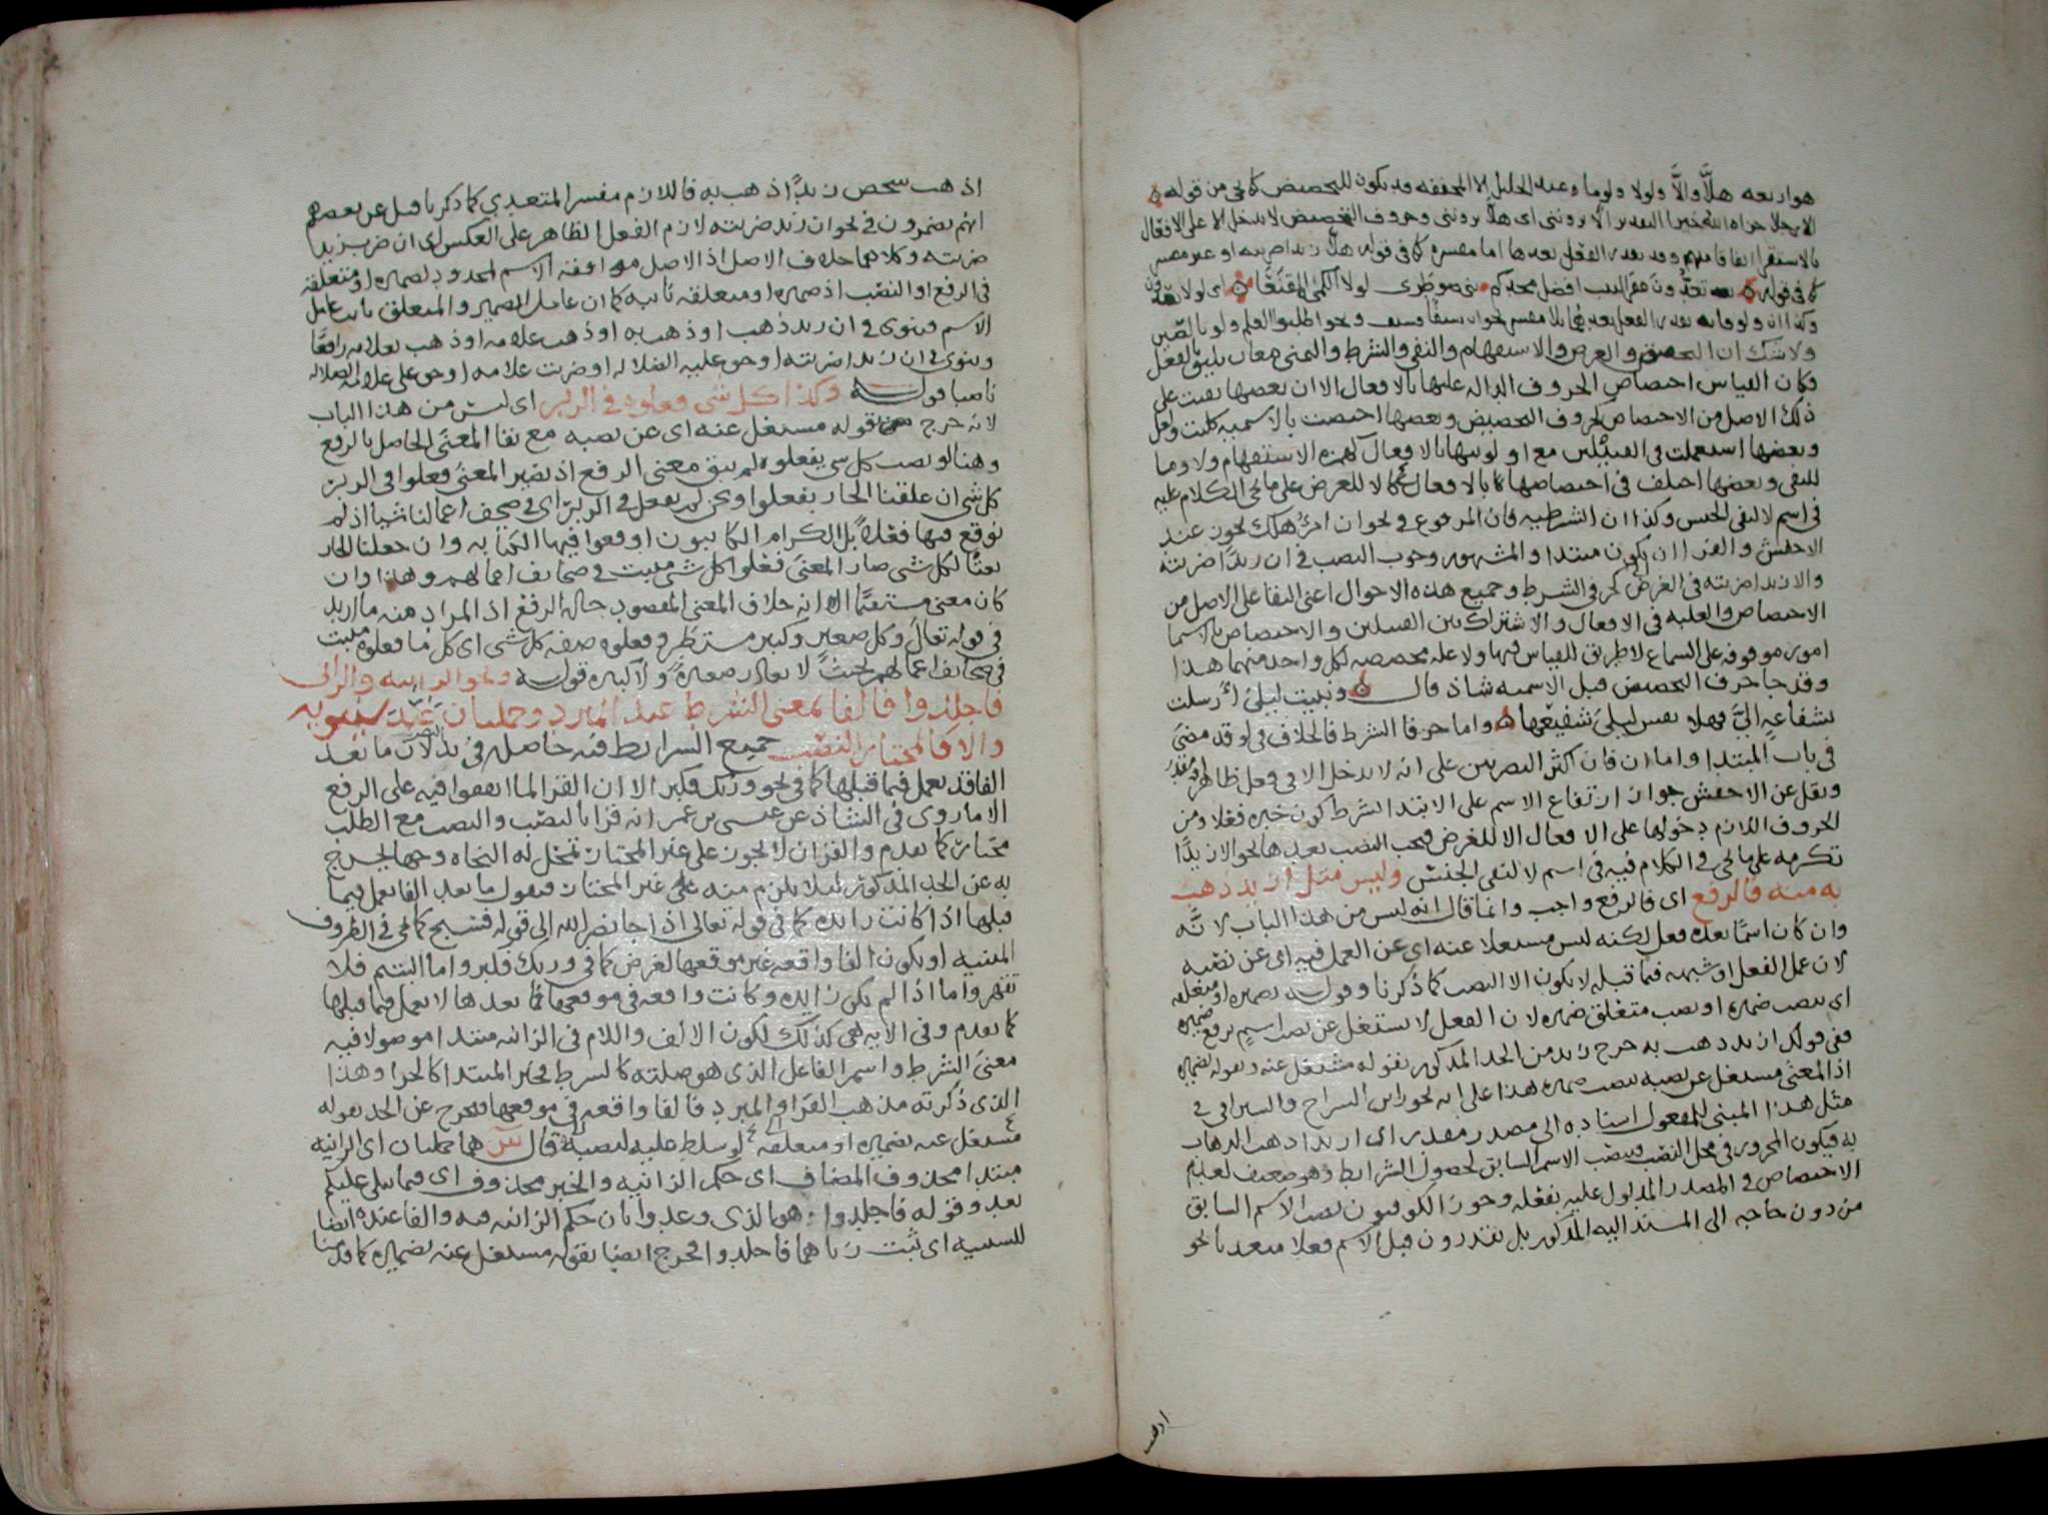 هو اربعه هلَّا والَّا ولولا ولوما وعند الخليل الا المخففه قد يكون للتحضيض كما في من قوله
الا رجلا جزاه الله خيرا التقدير الا تروننى اى هلا تروننى وحروف التحضيض لا تدخل الا على الافعال
بالاستقرا اتفاقا منهم وقد يقدر الفعل بعدها اما مفسره كما في قولك هلا زيدا ضربته او غير مفسر
كما فى قوله تعدُّون عقر النيب افضل مجدكم بنى ضوطرى لولا الكمى المقنعا اى لولا
وكذا ان ولو فانه يقدر الفعل بعدهما بلا مفسر نحو ان سيفا فسيف ونحو اطلبوا العلم ولو بالصين
ولا شك ان التحضيض والعرض والاستفهام والنفى والشرط والتمنى معان يليق بالفعل
فكان القياس اختصاص الحروف الداله عليها بالافعال الا ان بعضها بقيت على
ذلك الاصل من الاختصاص كحروف التحضيض وبعضها اختصت بالاسميه كليت ولعل
وبعضها استعملت فى القبيلين مع اولويتها بالافعال كهمزه الاستفهام ولا وما
للنفى وبعضها اختلف فى اختصاصها بالافعال كالا للعرض على ما يجى الكلام عليه
فى اسم لا لنفى الجنس وكذا ان الشرطيه فان المرفوع فى نحو ان امرُؤ هلك يجوز عند
الاخفش والفرا ان يكون مبتدا والمشهور وجوب النصب فى ان زيدًا ضربته
والا زيدا ضربته فى العرض كهو فى الشرط وجميع هذه الاحوال اعنى البقا على الاصل من
الاختصاص والغلبه فى الافعال والاشتراك بين القبيلين والاختصاص بالاسما
امور موقوفه على السماع لا طريق للقياس فيها ولا عله مخصصه لكل واحد منهما هذا
وقد جا حرف التحضيض قبل الاسميه شاذ قال ونبيت ليلى أرسلت
بشفاعةٍ الىَّ فهلا نفس ليلى شفيعها واما حرفا الشرط فالخلاف فى لو قد مضى
فى باب المبتدا واما ان فان اكثر البصريين على انه لا يدخل الا فى فعل ظاهر او مقدر
ونقل عن الاخفش جواز ارتفاع الاسم على الابتدا الشرط كون خبره فعلا ومن
الحروف اللازم دخولها على الافعال الا للعرض فيجب النصب بعدها نحو الا زيدًا
تكرمه على ما يجى فى الكلام فيه فى اسم لا لنفى الجنس وليس مثل ازيد ذهب
به منه فالرفع اى فالرفع واجب وانما قال انه ليس من هذا الباب لانَّه
وان كان اسمًا بعده فعل لكنه ليس مشتغلا عنه اى عن العمل فيه اى عن نصبه
لان عمل الفعل او شبهه فيما قبله لا يكون الا النصب كما ذكرنا وقوله بضميره او متعلقه
اى بنصب ضميره او نصب متعلق ضميره لان الفعل لا يشتغل عن نصب اسم برفع ضميره
ففى قولك ازيد ذهب به خرج زيد من الحد المذكور بقوله مشتغل عنه وبقوله بضميره
اذ المعنى مشتغل عن نصبه بنصب ضميره هذا على انه يجوز ابن السراج والسيرافى فى
مثل هذا المبنى للمفعول اسناده الى مصدر مقدر اى ازيدا ذهب الذهاب
به فيكون المجرور فى محل النصب فينصب الاسم السابق لحصول الشرائط وهو ضعيف لعدم
الاختصاص فى المصدر المدلول عليه بفعله وجوز الكوفيون نصب الاسم السابق
من دون حاجه الى المسند اليه المذكور بل يقدرون قبل الاسم فعلا متعديا نحو
اذهب
اذهب شخص زيدًا ذهب به فاللازم مفسر المتعدى كما ذكرنا قبل عن بعضهم
انهم يضمرون فى نحو ان زيد ضربته لازم الفعل الظاهر على العكس اى ان ضرب زيد
ضربته وكلاهما خلاف الاصل اذ الاصل موافقه الاسم المحدود لضميره او متعلقه
فى الرفع او النصب اذ ضميره او متعلقه نايبه كما ان عامل الضمير والمتعلق نايب عامل
الاسم فينوى فى ان زيد ذهب او ذهب به او ذهب غلامه او ذهب بغلامه رافعًا
وينوى فى ان زيدا ضربته او حق عليه الضلاله او ضربت غلامه او حق على غلامه الضلاله
ناصبا قوله وكذا كل شى فعلوه فى الزبر اى ليس من هذا الباب
لانه خرج قوله مشتغل عنه اى عن نصبه مع بقا المعنى الحاصل بالرفع
وهنا لو نصب كل شى بفعلوه لم يبق معنى الرفع اذ يصير المعنى فعلوا فى الزبر
كل شى ان علقنا الجار بفعلوا ونحن لم نفعل فى الزبر اى فى صحف اعمالنا شيا اذ لم
نوقع فيها فعلا بل الكرام الكاتبون اوقعوا فيها الكتابه وان جعلنا الجار
نعتًا لكل شى صار المعنى فعلوا كل شى مثبت فى صحائف اعمالهم وهذا وان
كان معنى مستقيما الا انه خلاف المعنى المقصود حاله الرفع اذ المراد منه ما اريد
فى قوله تعالى وكل صغير وكبير مستطر وفعلوه صفه كل شى اى كل ما فعلوه مثبت
فى صحائف اعمالهم بحيثُ لا يغادر صغيرة ولا كبيره قوله ونحو الزانيه والزانى
فاجلدوا فالفا بمعنى الشرط عند المبرد وجملتان عند سيبويه
والا فالمختار النصب جميع الشرائط فيه حاصله فى بد لان ما بعد
الفا قد يعمل فيما قبلها كما فى نحو وربك فكبر الا ان القرا لما اتفقوا فيه على الرفع
الا ما روى فى الشاذ عن عيسى بن عمر انه قرا بالنصب والنصب مع الطلب
مختار كما تقدم والقران لا يجوز على غير المختار تمحل له النحاه وجها يخرج
به عن الحد المذكور ليلا يلزم منه على غير المختار فنقول ما بعد الفا يعمل فيما
قبلها اذا كانت زايده كما فى قوله تعالى اذا جا نصر الله الى قوله فسبح كما يجى فى الظروف
المبنيه او يكون الفا واقعه غير موقعها لغرض كما فى وربك فكبر واما اليتيم فلا
تقهر واما اذا لم يكن زايده وكانت واقعه فى موقعها فما بعدها لا يعمل فيما قبلها
كما تقدم وفى الايه هى كذلك لكون الالف واللام فى الزانيه مبتدا موصولا فيه
معنى الشرط واسم الفاعل الذى هو صلته كالشرط فخبر المبتدا كالجزا وهذا
الذى ذكرته مذهب الفرا والمبرد فالفا واقعه فى موقعها فيخرج عن الحد بقوله
مشتغل عنه بضميره او متعلقه لو سلط عليه لنصبه قال س هما جملتان اى الزانيه
مبتدا محذوف المضاف اى حكم الزانيه والخبر محذوف اى فيما يتلى عليكم
بعد وقوله فاجلدوا هو الذى وعدوا بان حكم الزانيه فيه والفا عنده ايضا
للسببيه اى ان ثبت زناهما فاجلدوا فخرج ايضا بقوله مشتغل عنه بضميره كما قدمنا